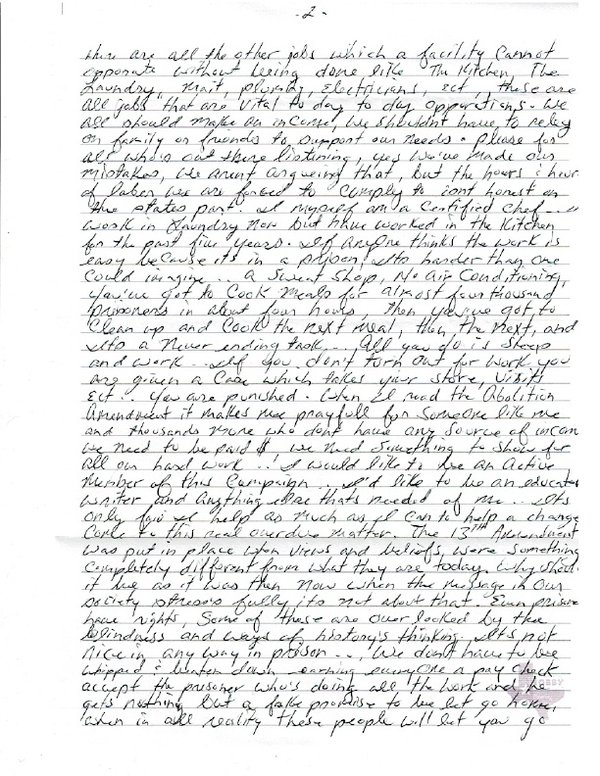 -2-
there are all the other jobs which a facility cannot
opporate without being done like The Kitchen, The
Laundry, Mait, plumbing, Electricians, Ect, these are
all jobs that are vital to day to day opportions. We
all should make an income, we shouldnt have to relay
on family or friends to support our needs. please for
all who's out there listining, yes we've made our
mistakes, we arent argueing that, but the hours & hours
of labor we are forced to comply to isnt honest on
the states part. I myself am a Certified chef... I
work in Laundry now but have worked in the Kitchen
for the past five years. If anyone thinks the work is
easy because its in a prison! Its harder than one
could imagine... A Sweat Shop, No Air Conditioning,
you've got to Cook Meals for almost four thousand
prisoners in about four hours, then you've got to
Clean up and Cook the next meal, then, the next, and
its a never ending task... All you do is sleep
and work.. If you don't turn out for work you
are given a Case which takes your store, Visits
Ect.. you are punished. When I read the Abolition
Amendment it makes me prayfull for someone like me
and thousands more who dont have any source of incom
we need to be paid $! we need something to show for
all our hard work..! I would like to be an Active
Member of this Campaign... I'd like to be an educator
writer and anything else thats needed of me... Its
only fair I help as much as I can to help a change
Come to this real overdue matter. The 13th Ammendment
was put in place when views and beliefs, were something
completely different from what they are today. Why should
it be as it was then now when the message in our
society stress's fully its not about that. Even prisoners
have rights, Some of these are over looked by the
blindness and ways of history's thinking. Its not
nice in any way in prison... We dont have to be
whipped & beaten down earning everyone a pay check
accept the prisoner who's doing all the work and he
gets nothing but a fake promise to be let go home,
when in all reality these people will let you go